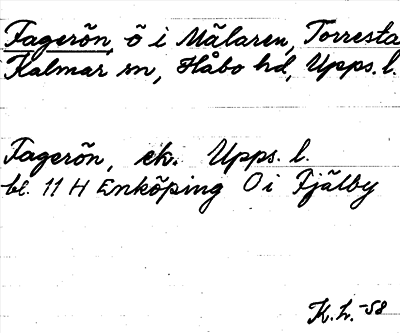 Fagerön, ö i Mälaren, Torresta
Kalmar sn, Håbo hd, Upps. l.
Fagerön, ek. Upps. l.
bl. 11 H Enköping O i Fjälby
K.L. -58